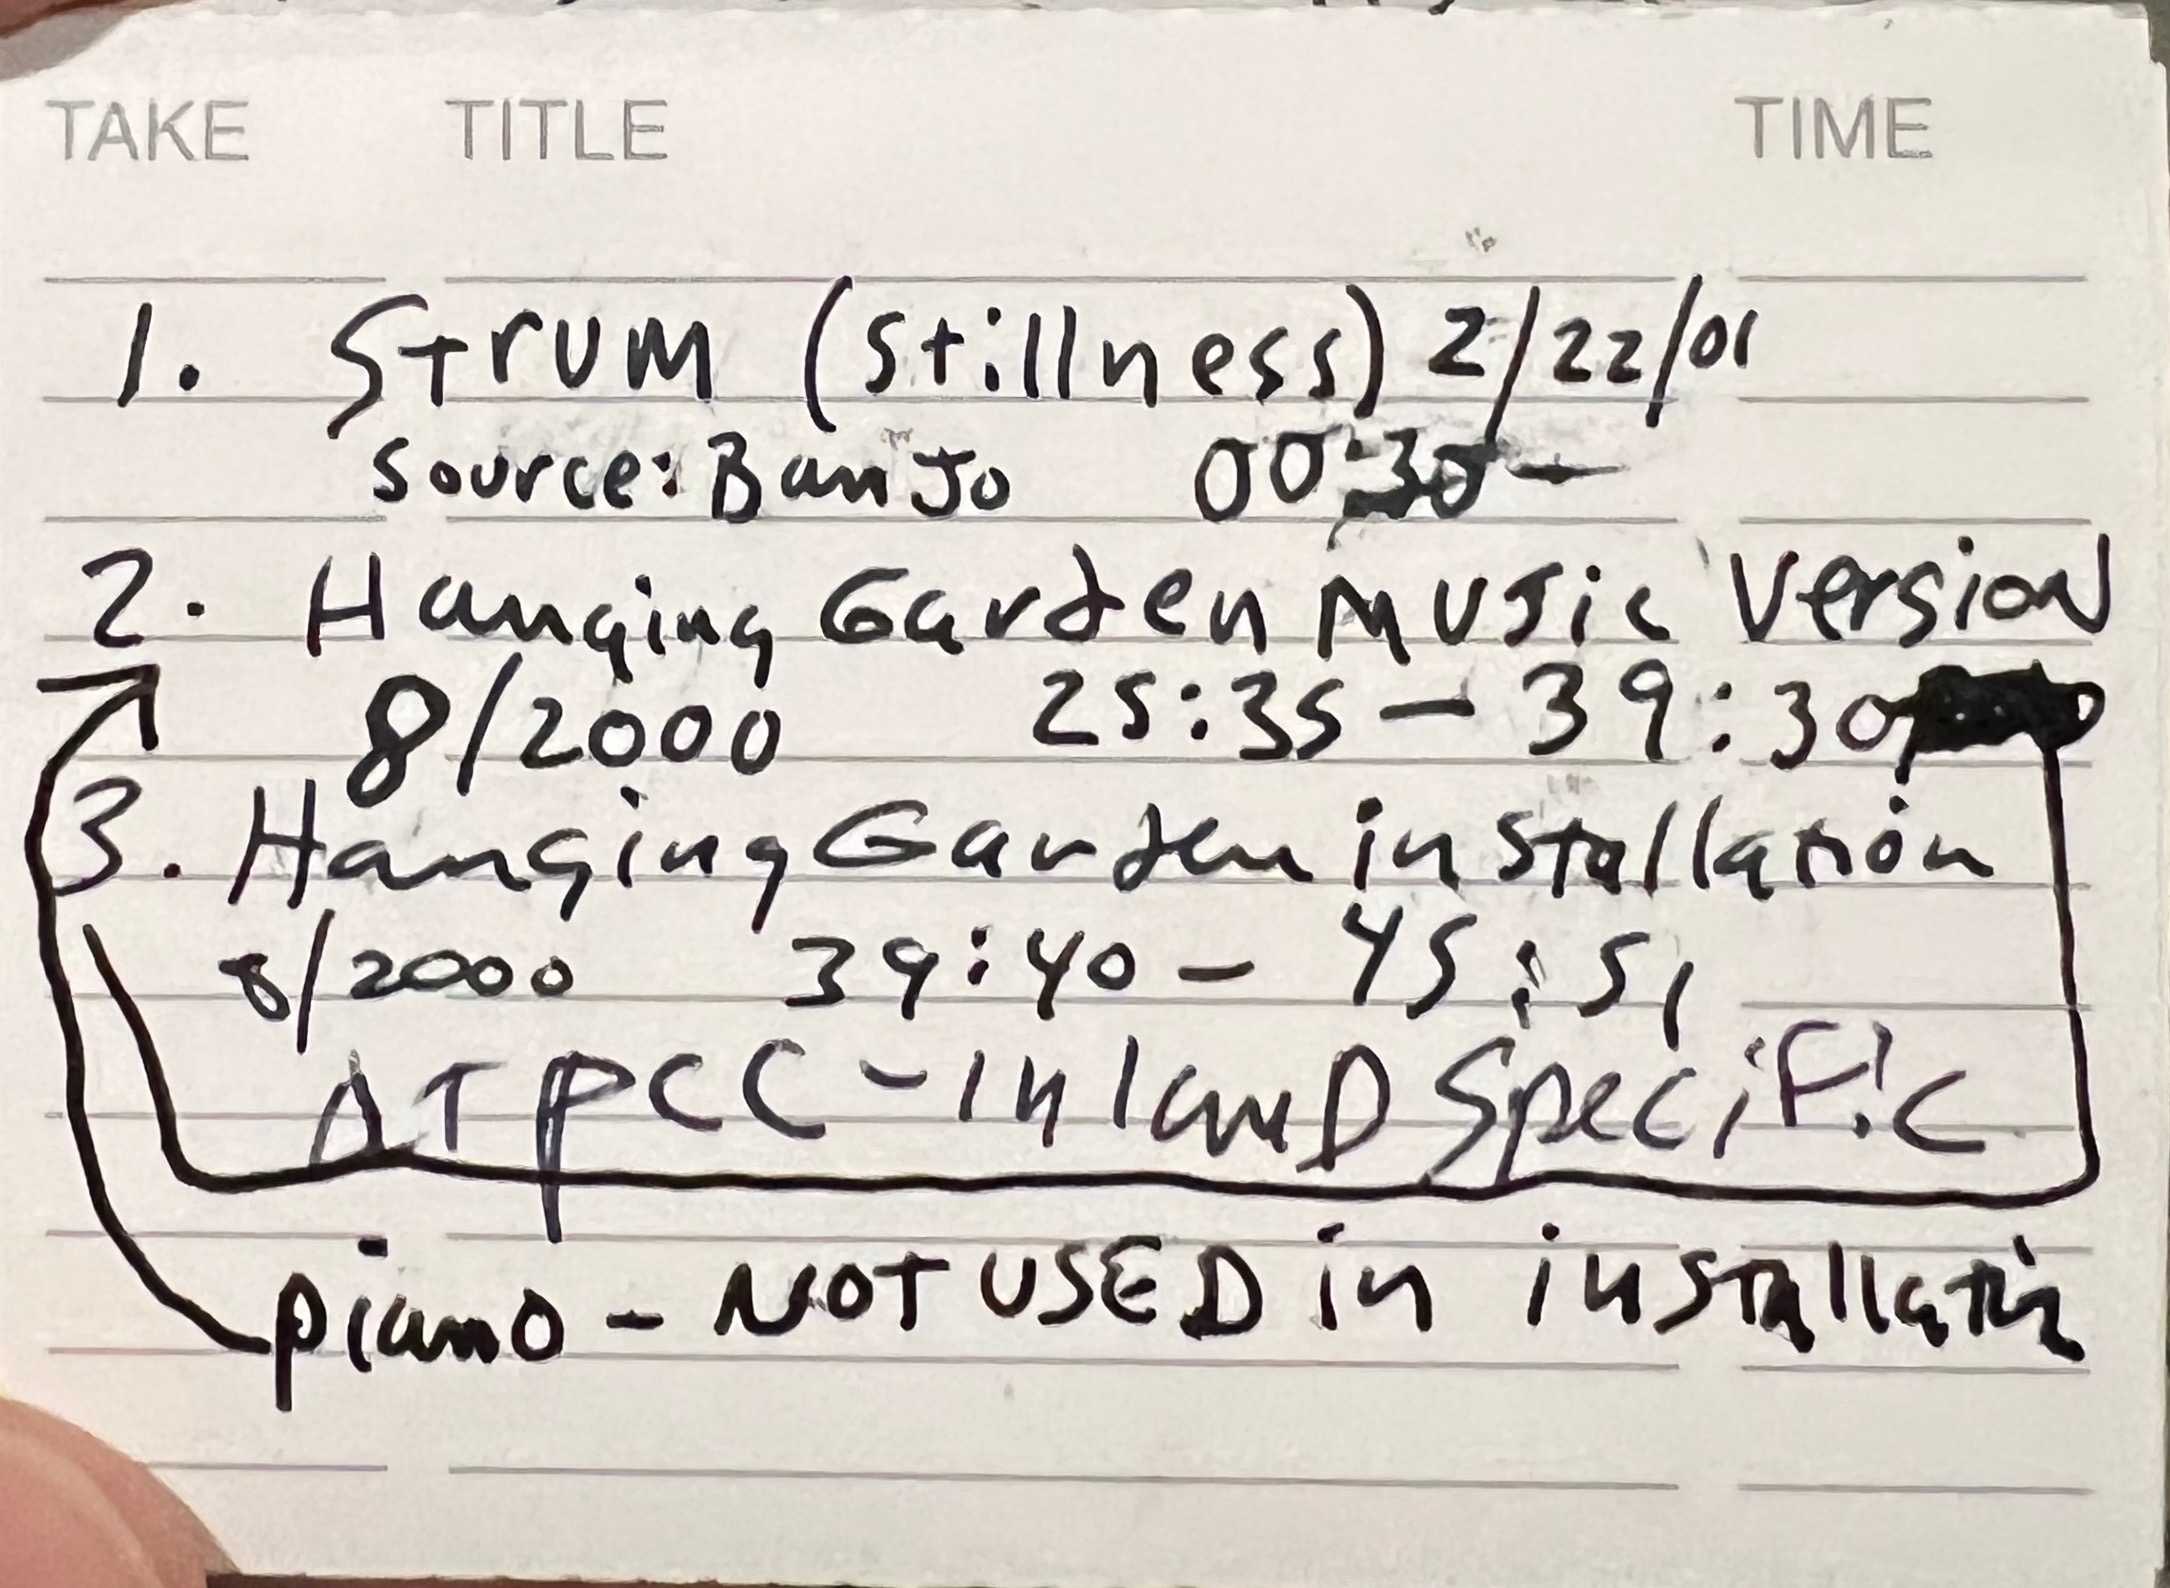 TAKE TITLE TIME
1. STrUM (Stillness) 2/22/01
Source: BanJo 00:30 —
2. Hanging Garden MUSic Version
8/2000 25:35 — 39:30
3. Hanging Garden installation
8/2000 39:40 — 45:51
AT PCC - InlanD SpeciFic
piano - NOT USED in installatin